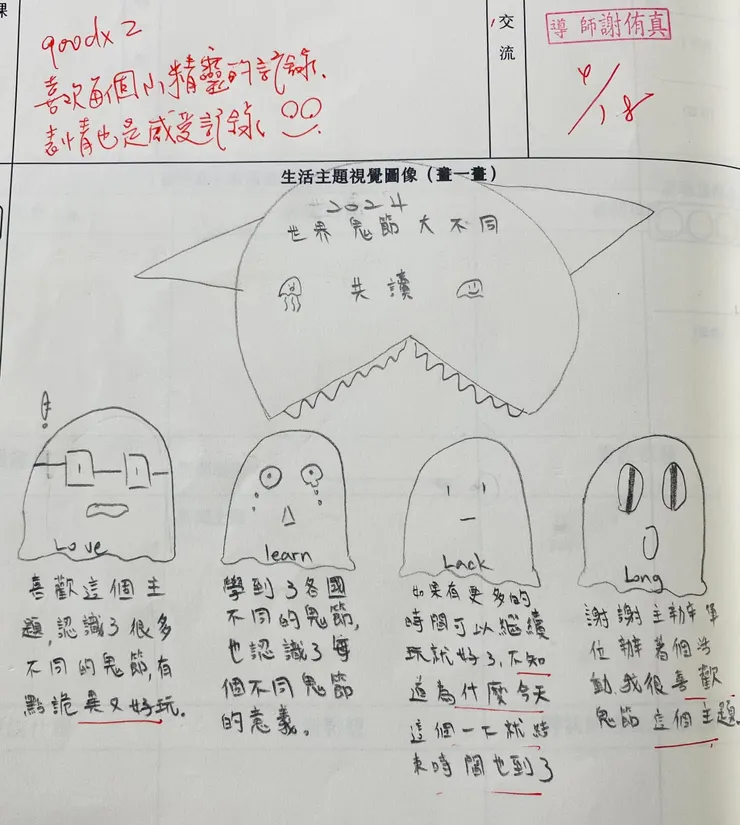 課
goodx2
喜歡每個小精靈的記錄,
表情也是感受記錄
交流
導師謝侑真
4/18
生活主題視覺圖像（畫一畫）
2024
世界鬼節大不同
共讀
Love
喜歡這個主
題,認識了很多
不同的鬼節,有
點詭異又好玩.
learn
學到了各國
不同的鬼節,
也認識了每
個不同鬼節
的意義。
Lack
如果有更多的
時間可以繼續
玩就好了,不知
道為什麼今天
這個一下就結
束時間也到了
Long
謝謝主辦單
位辦著個活
動,我很喜歡
鬼節這個主題